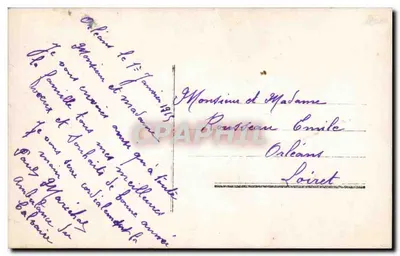 Orléans le 1er Janvier 1915
Monsieur et madame
Je vous envoies ainsi qu'à toute
la famille tous mes meilleurs
Voeux et Souhaits de bonne année
Je vous serre cordialement la
main
Paul Maréchal
Ambulance du
Calvaire
Monsieur et Madame
Rousseau Emile
Orléans
Loiret